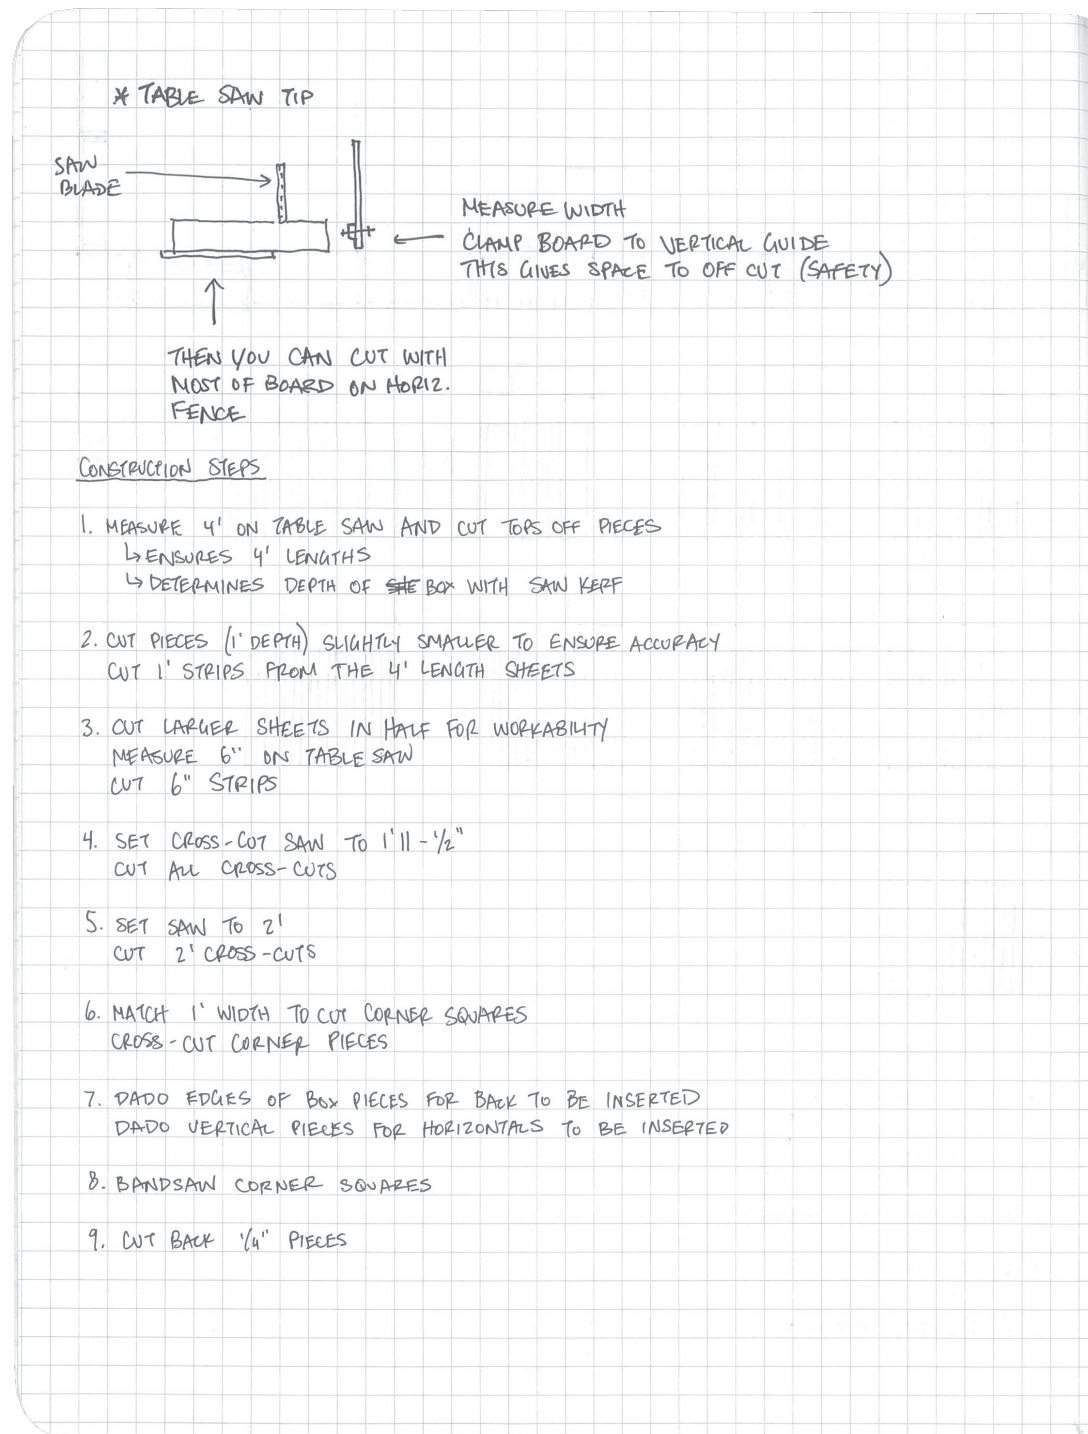 * TABLE SAW TIP
SAW
BLADE
MEASURE WIDTH
CLAMP BOARD TO VERTICAL GUIDE
THIS GIVES SPACE TO OFF CUT (SAFETY)
THEN YOU CAN CUT WITH
MOST OF BOARD ON HORIZ.
FENCE
CONSTRUCTION STEPS
1. MEASURE 4' ON TABLE SAW AND CUT TOPS OFF PIECES
↳ ENSURES 4' LENGTHS
↳ DETERMINES DEPTH OF BOX WITH SAW KERF
2. CUT PIECES (1' DEPTH) SLIGHTLY SMALLER TO ENSURE ACCURACY
CUT 1' STRIPS FROM THE 4' LENGTH SHEETS
3. CUT LARGER SHEETS IN HALF FOR WORKABILITY
MEASURE 6" ON TABLE SAW
CUT 6" STRIPS
4. SET CROSS-CUT SAW TO 1'11-1/2"
CUT ALL CROSS-CUTS
5. SET SAW TO 2'
CUT 2' CROSS-CUTS
6. MATCH 1' WIDTH TO CUT CORNER SQUARES
CROSS-CUT CORNER PIECES
7. DADO EDGES OF BOX PIECES FOR BACK TO BE INSERTED
DADO VERTICAL PIECES FOR HORIZONTALS TO BE INSERTED
8. BANDSAW CORNER SQUARES
9. CUT BACK 1/4" PIECES